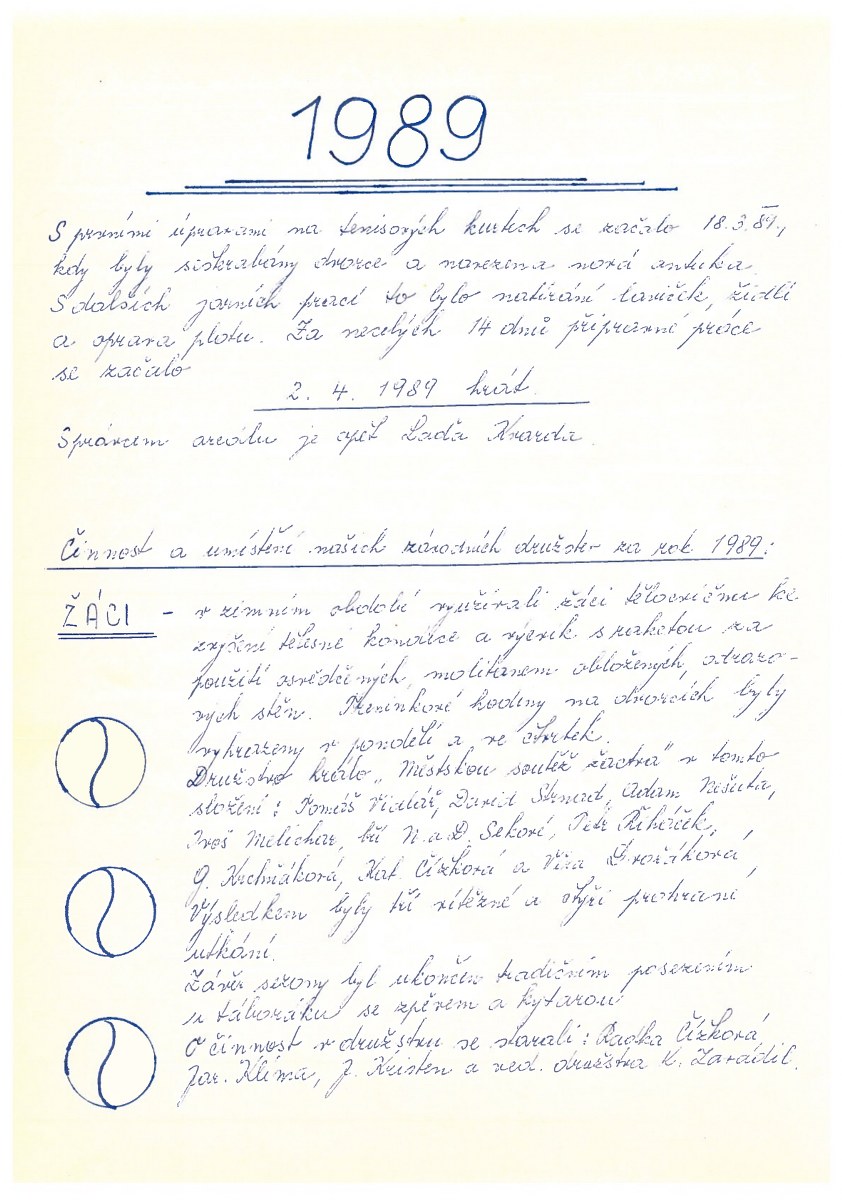 1989
S prvními úpravami na tenisových kurtech se začalo 18.3.89.,
kdy byly seškrabány dvorce a navezena nová antuka.
S dalších jarních prací to bylo natírání laviček, židlí
a oprava plotu. Za necelých 14 dnů přípravné práce
se začalo
2. 4. 1989 hrát.
Správcem areálu je opět Laďa Kvarda.
Činnost a umístění našich závodních družstev za rok 1989:
ŽÁCI - v zimním období využívali žáci tělocvičnu ke
zvýšení tělesné kondice a výcvik s raketou za
použití osvědčených, molitanem obložených, odrazo-
vých stěn. Tréninkové hodiny na dvorcích byly
vyhrazeny v pondělí a ve čtvrtek.
Družstvo hrálo „Městskou soutěž žactva" v tomto
složení: Tomáš Vialář, David Strnad, Adam Nešuta,
Melichar, bří N. a D. Sekové, Petr Řiháček,
Krchňáková, Kat. Čížková a Věra Dvořáková
Výsledkem byly tři vítězné a čtyři prohrané
utkání.
Závěr sezony byl ukončen tradičním posezením
u táboráku se zpěvem a kytarou
O činnost v družstvu se starali: Radka Čížková,
Jar. Klíma, J. Kristen a ved. družstva K. Zavadil.